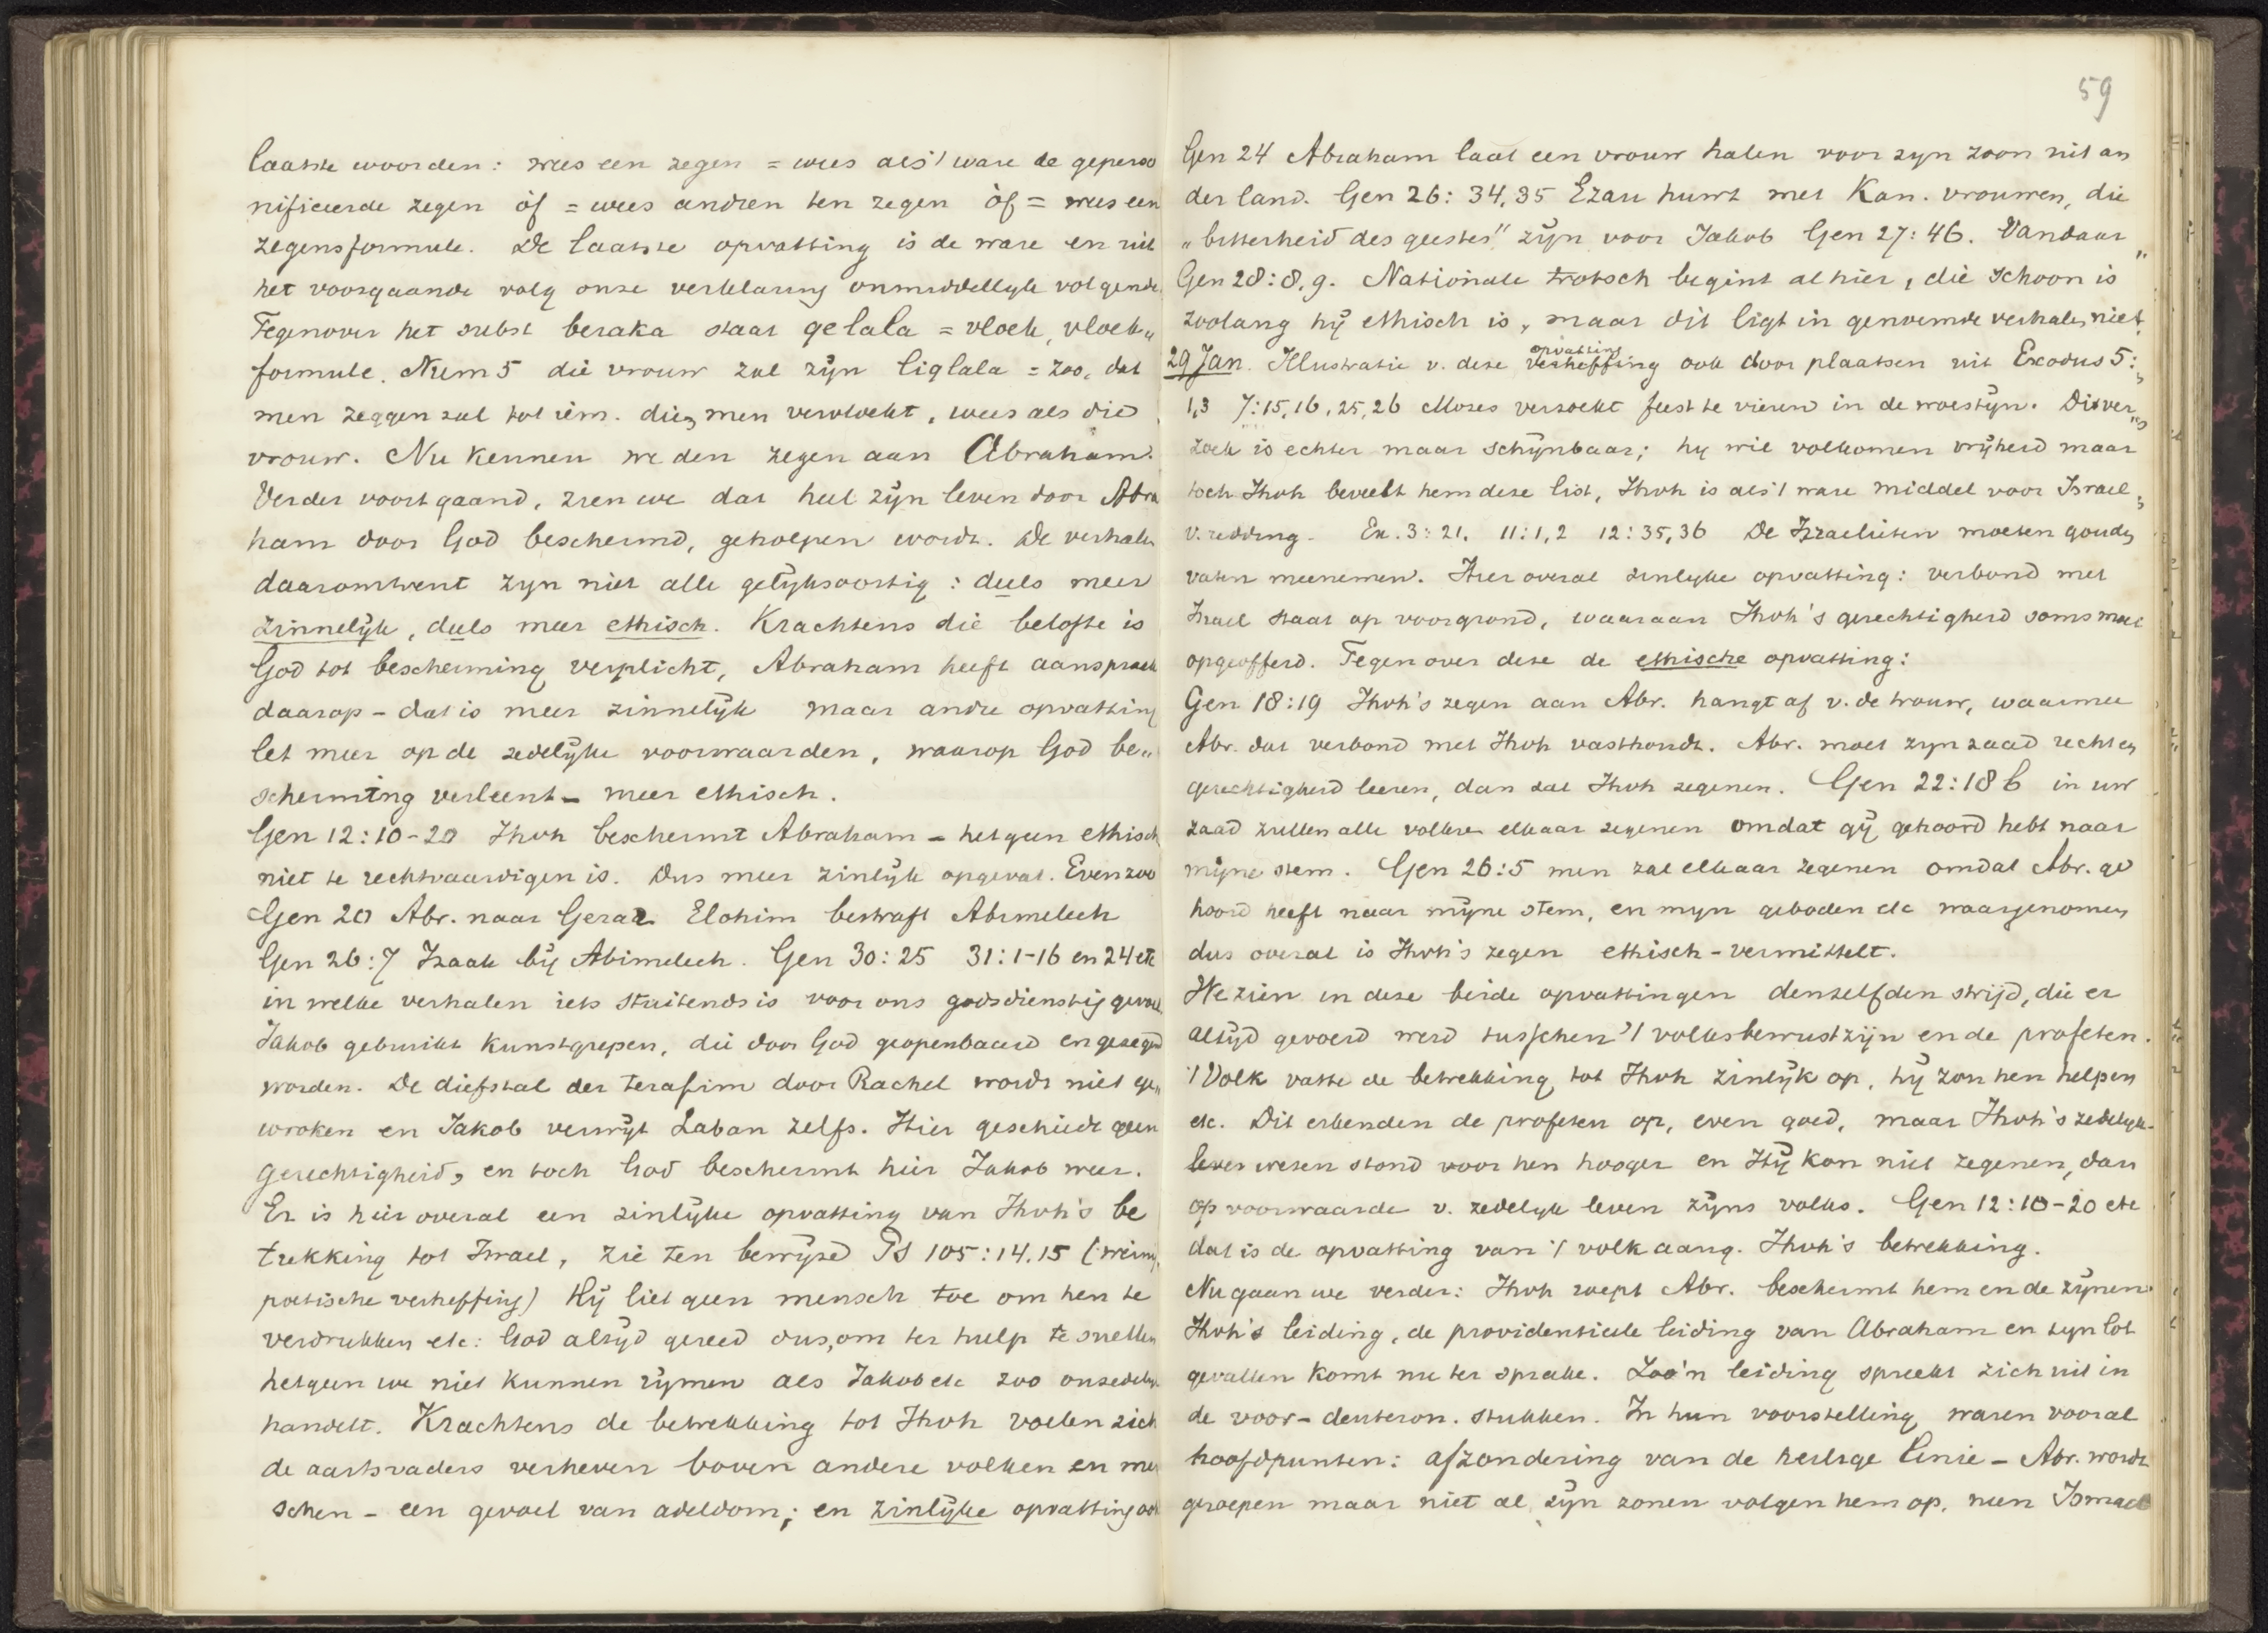 laatste woorden: wees een zegen = wees als 't ware de geperso
nificeerde zegen òf = wees andren ten zegen òf = wees een
zegensformule. De laatste opvatting is de ware en uit
het voorgaande volg onze verklaring onmiddellyk volgende
Tegenover het subst beraka staat qelala = vloek, vloek„
formule. Num 5 die vrouw zal zijn liqlala = zoo, dat
men zeggen zal tot iem. dien men vervloekt, wees als die
vrouw. Nu kennen we den zegen aan Abraham.
Verder voortgaand, zien we dat heel zijn leven door Abra
ham door God beschermd, geholpen wordt. De verhalen
daaromtrent zyn niet alle gelijksoortig: deels meer
zinnelijk, deels meer ethisch. Krachtens die belofte is
God tot bescherming verplicht, Abraham heeft aanspraak
daarop - dat is meer zinnelijk maar andre opvatting
let meer op de zedelijke voorwaarden, waarop God be„
scherming verleent - meer ethisch.
Gen 12:10-20 Jhvh beschermt Abraham - hetgeen ethisch
niet te rechtvaardigen is. Dus meer zinlijk opgevat. Evenzoo
Gen 20 Abr. naar Gerar Elohim bestraft Abimelech
Gen 26:7 Izaak bij Abimelech. Gen 30:25 31:1-16 en 24 etc
in welke verhalen iets stuitends is voor ons godsdienstig gevoel
Jakob gebruikt kunstgrepen, die door God geopenbaard en gezegend
worden. De diefstal der terafim door Rachel wordt niet ge„
wroken en Jakob verwijt Laban zelfs. Hier geschiedt geen
gerechtigheid, en toch God beschermt hier Jakob weer.
Er is hier overal een zinlijke opvatting van Jhvh's be
trekking tot Israel, zie ten bewijze Ps 105:14.15 (weinig
poëtische verheffing) Hij liet geen mensch toe om hen te
verdrukken etc: God altijd gereed dus, om ter hulp te snellen
hetgeen we niet kunnen rijmen als Jakob etc zoo onzedelijk
handelt. Krachtens de betrekking tot Jhvh voelen zich
de aartsvaders verheven boven andere volken en men
schen - een gevoel van adeldom; en zinlijke opvatting ook
59
Gen 24 Abraham laat een vrouw halen voor zyn zoon uit an
der land. Gen 26:34,35 Ezau huwt met Kan. vrouwen, die
„bitterheid des geestes" zijn voor Jakob Gen 27:46. Vandaar „
Gen 28:8,9. Nationale trotsch begint al hier, die schoon is
zoolang hij ethisch is, maar dit ligt in genoemde verhalen niet.
29 Jan. Illustratie v. deze verheffing opvatting ook door plaatsen uit Exodus 5:
1,3 7:15,16,25,26 Mozes verzoekt feest te vieren in de woestijn. Dit ver„
zoek is echter maar schijnbaar; hy wil volkomen vrijheid maar
toch Jhvh beveelt hem deze list, Jhvh is als 't ware middel voor Israel
v. redding. Ex. 3:21. 11:1,2 12:35,36 De Izraelieten moeten gouden
vaten meenemen. Hier overal zinlyke opvatting: verbond met
Israel staat op voorgrond, waaraan Jhvh's gerechtigheid soms met
opgeofferd. Tegenover deze de ethische opvatting:
Gen 18:19 Jhvh's zegen aan Abr. hangt af v. de trouw, waarmee
Abr. dat verbond met Jhvh vasthoudt. Abr. moet zyn zaad recht en
gerechtigheid leeren, dan zal Jhvh zegenen. Gen 22:18b in uw
zaad zullen alle volken elkaar zegenen omdat gij gehoord hebt naar
mijne stem. Gen 26:5 men zal elkaar zegenen omdat Abr. ge
hoord heeft naar mijne stem, en myn geboden etc waargenomen
dus overal is Jhvh's zegen ethisch-vermittelt.
We zien in deze beide opvattingen denzelfden strijd, die er
altijd gevoerd werd tusschen 't volksbewustzijn en de profeten.
't Volk vatte de betrekking tot Jhvh zinlijk op, hij zou hen helpen
etc. Dit erkenden de profeten op, even goed, maar Jhvh's zedelyk-
leven wezen stond voor hen hooger en Hij kon niet zegenen, dan
op voorwaarde v. zedelyk leven zijns volks. Gen 12:10-20 etc
dat is de opvatting van 't volk aang. Jhvh's betrekking.
Nu gaan we verder: Jhvh roept Abr. beschermt hem en de zijnen
Jhvh's leiding, de providentieele leiding van Abraham en zyn lot
gevallen komt nu ter sprake. Zoo'n leiding spreekt zich uit in
de voor-deuteron. stukken. In hun voorstelling waren vooral
hoofdpunten: afzondering van de heilige linie - Abr. wordt
geroepen maar niet al zijn zonen volgen hem op, neen Ismael